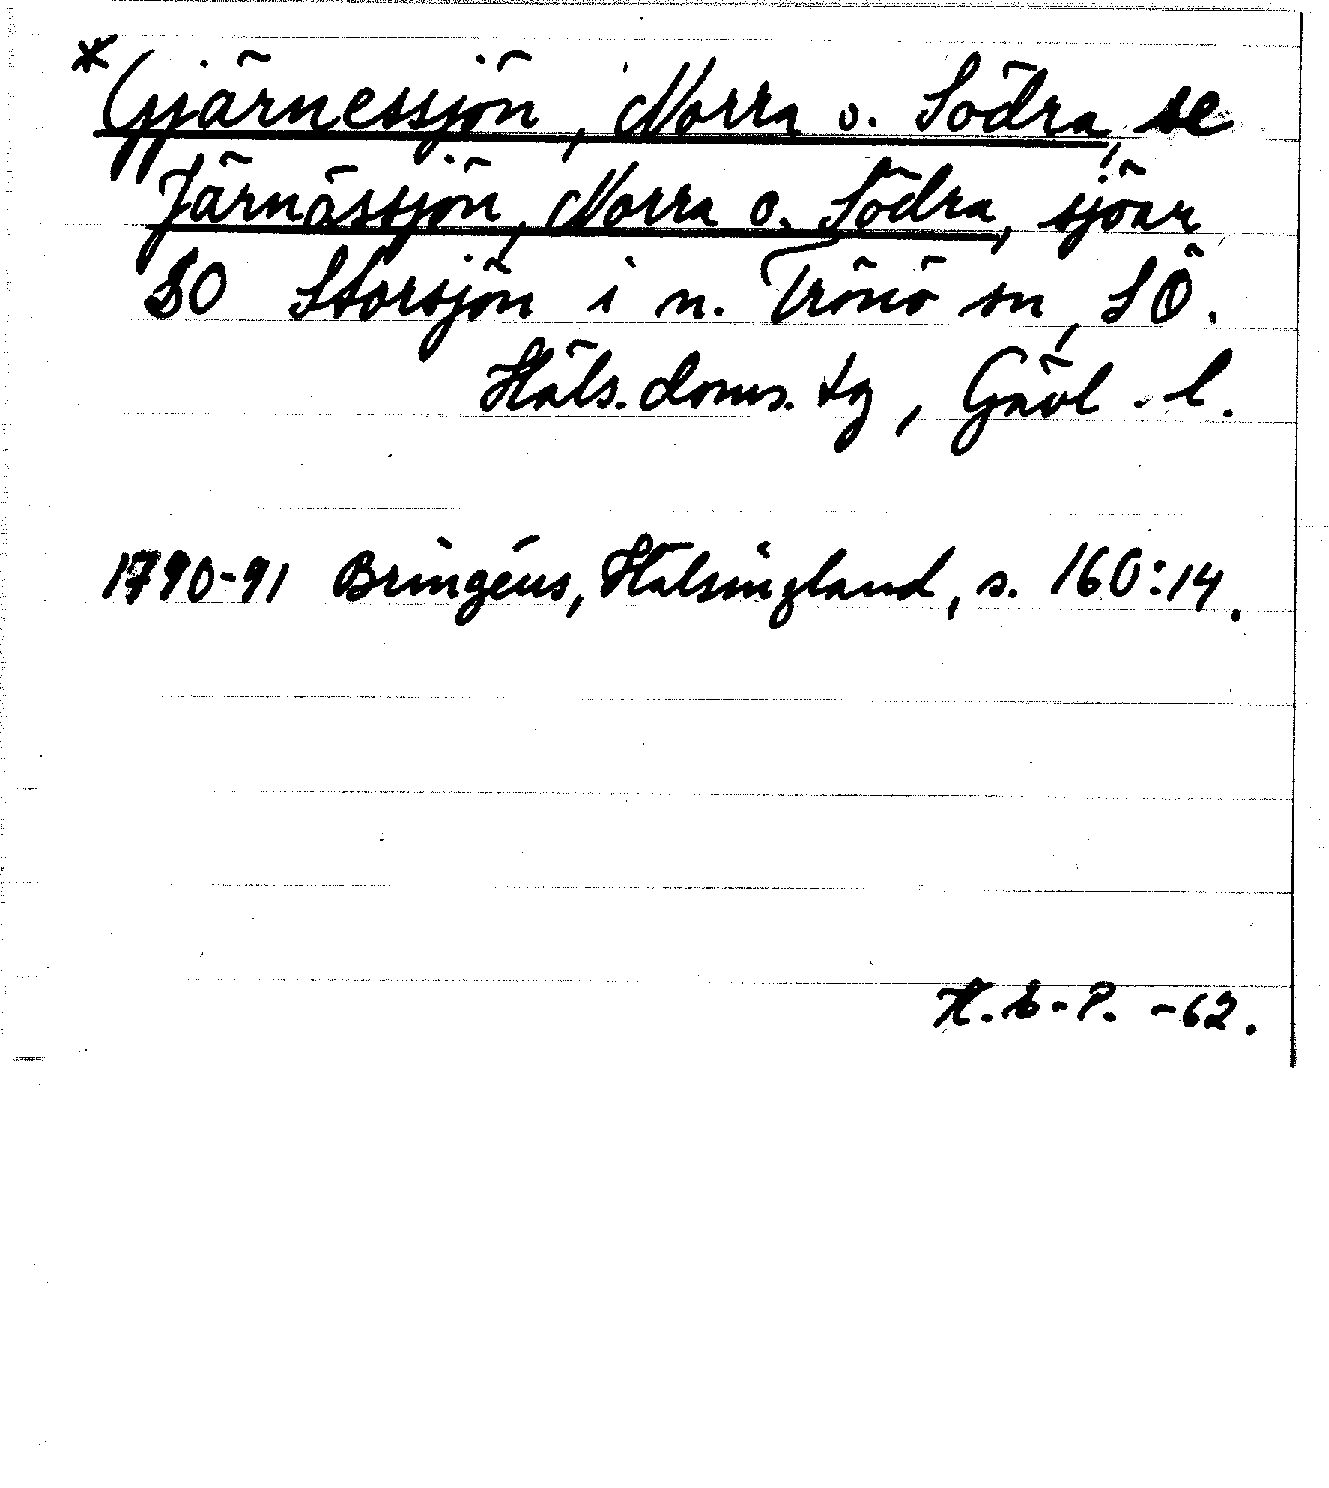 * Gjärnessjön, Norra o. Södra, se
Järnässjön, Norra o. Södra, sjöar
SO Storsjön i n. Trönö sn, SÖ.
Häls. doms. tg, Gävl. l.
1790-91 Bringéus, Hälsingland, s. 160:14.
H. E-P. -62.